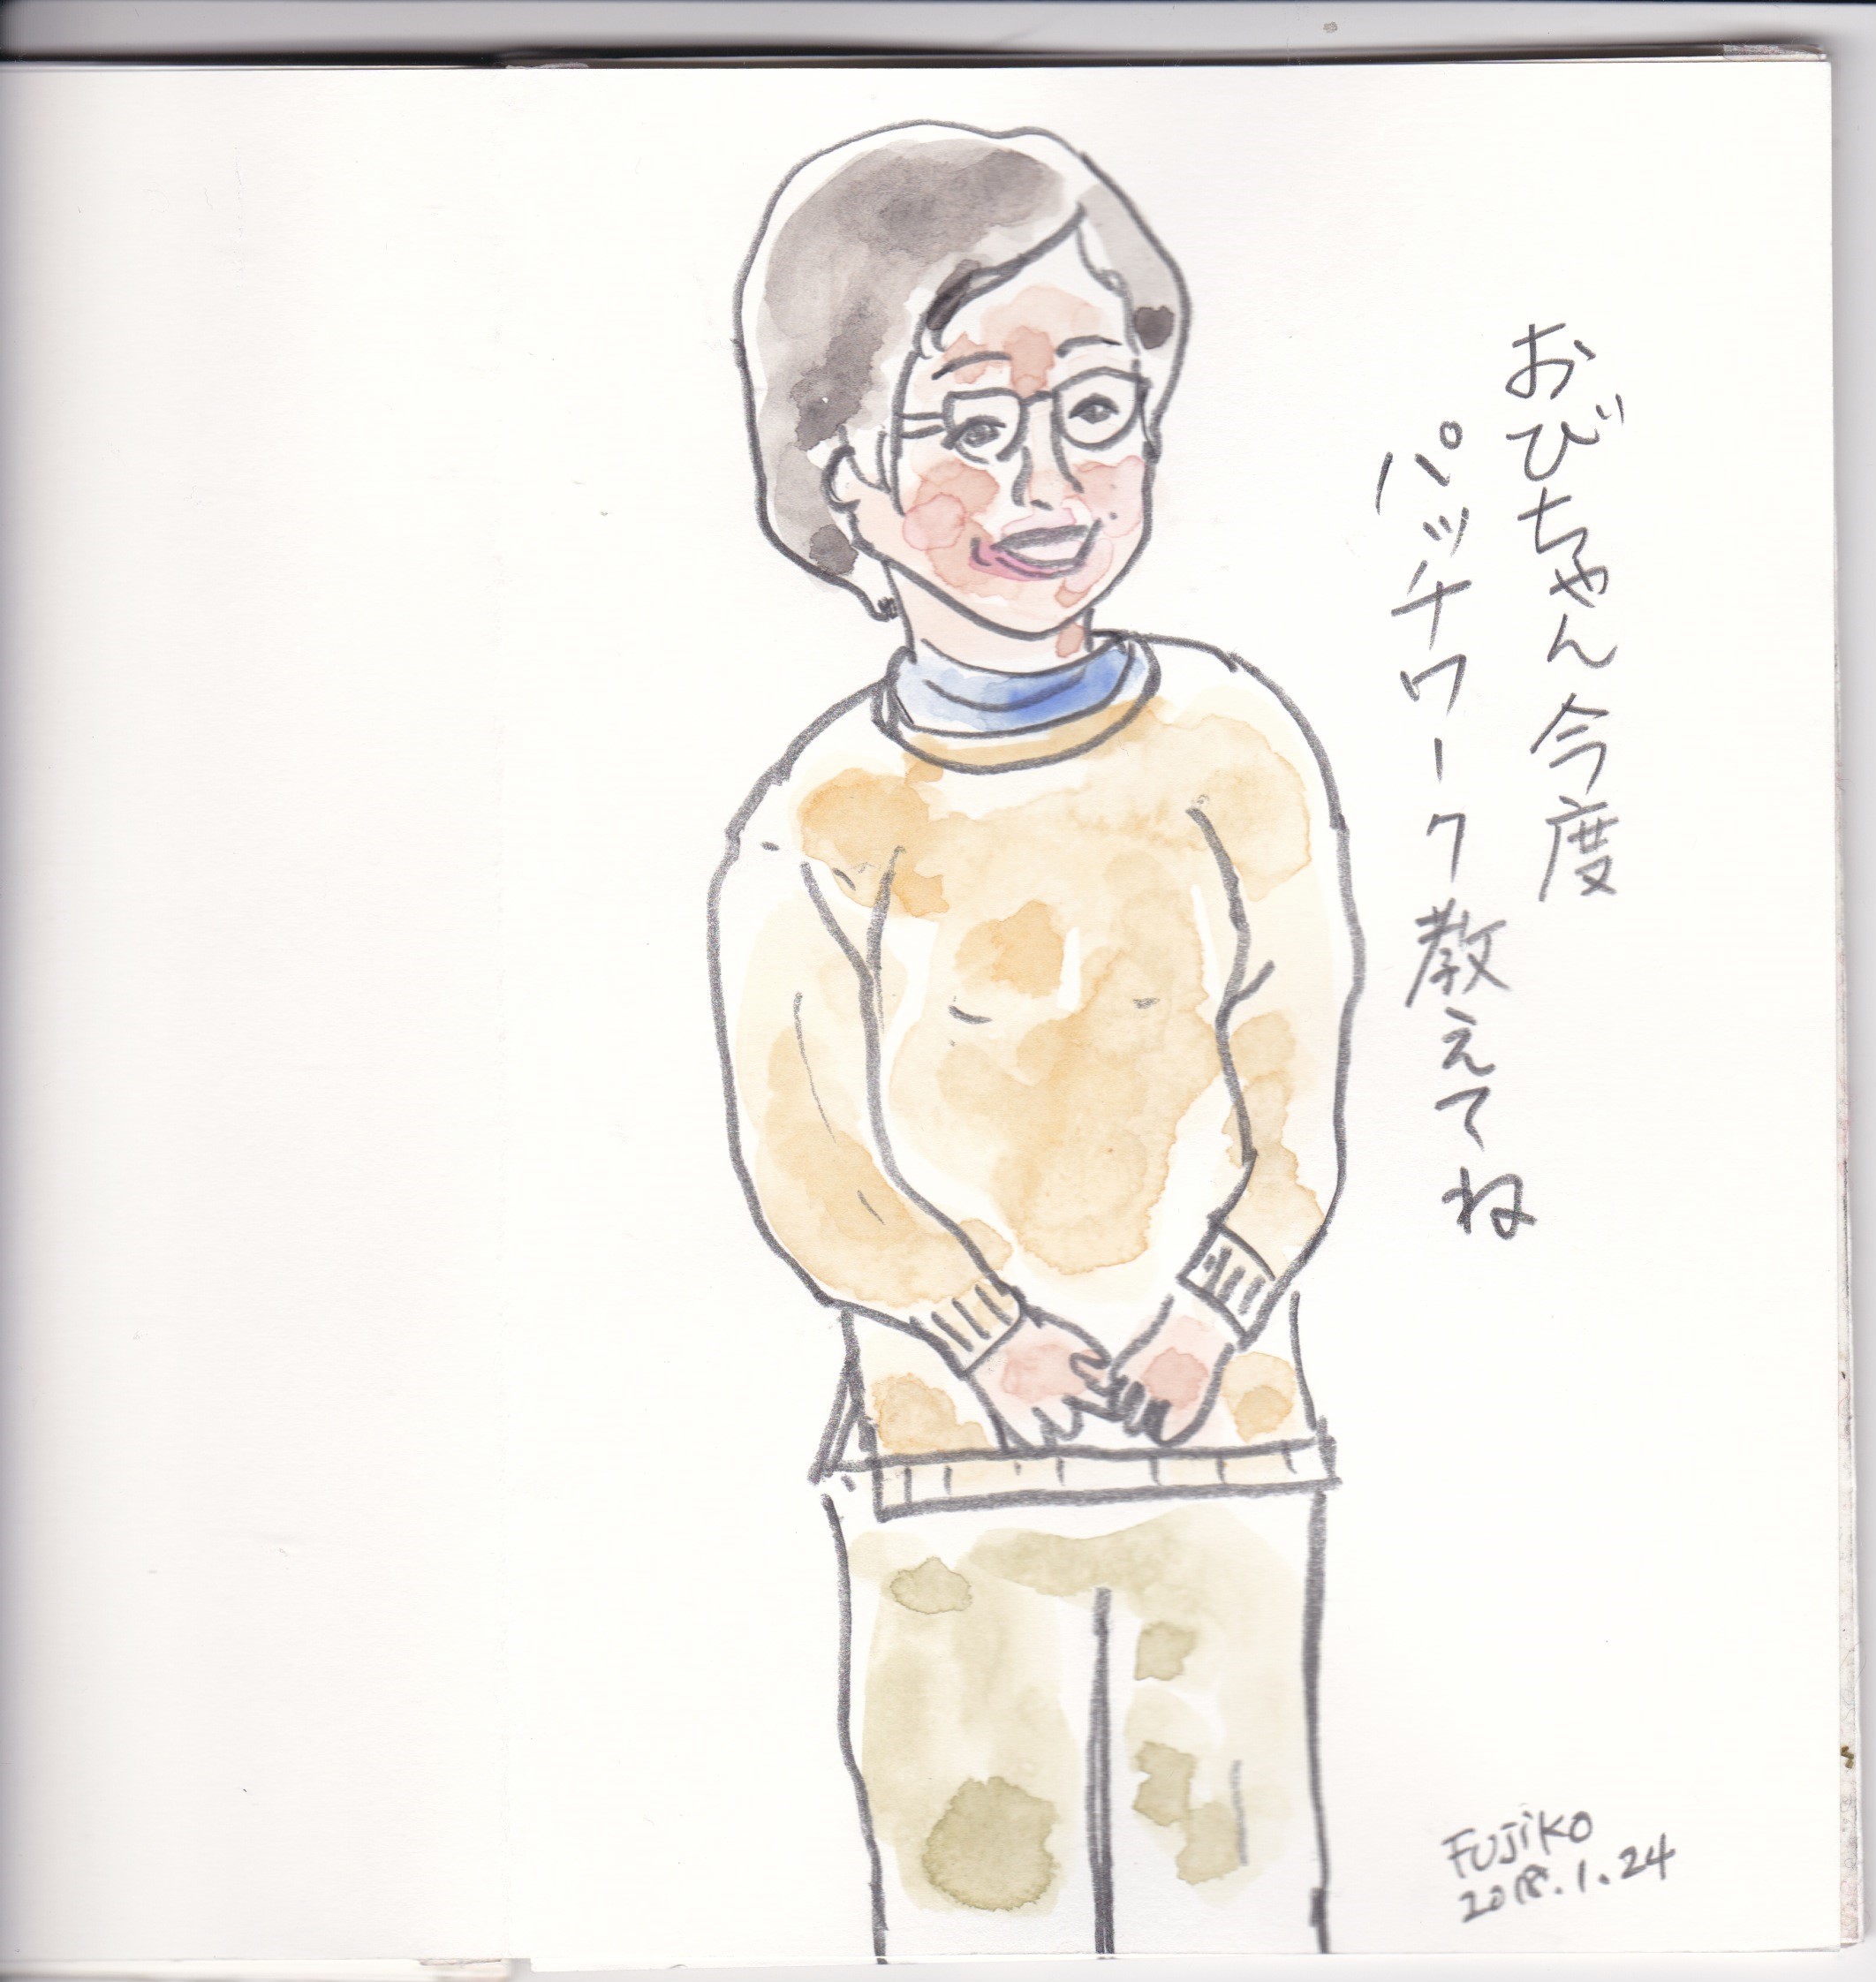 おびちゃん今度
パッチワーク教えてね
FUJiKO
2018.1.24